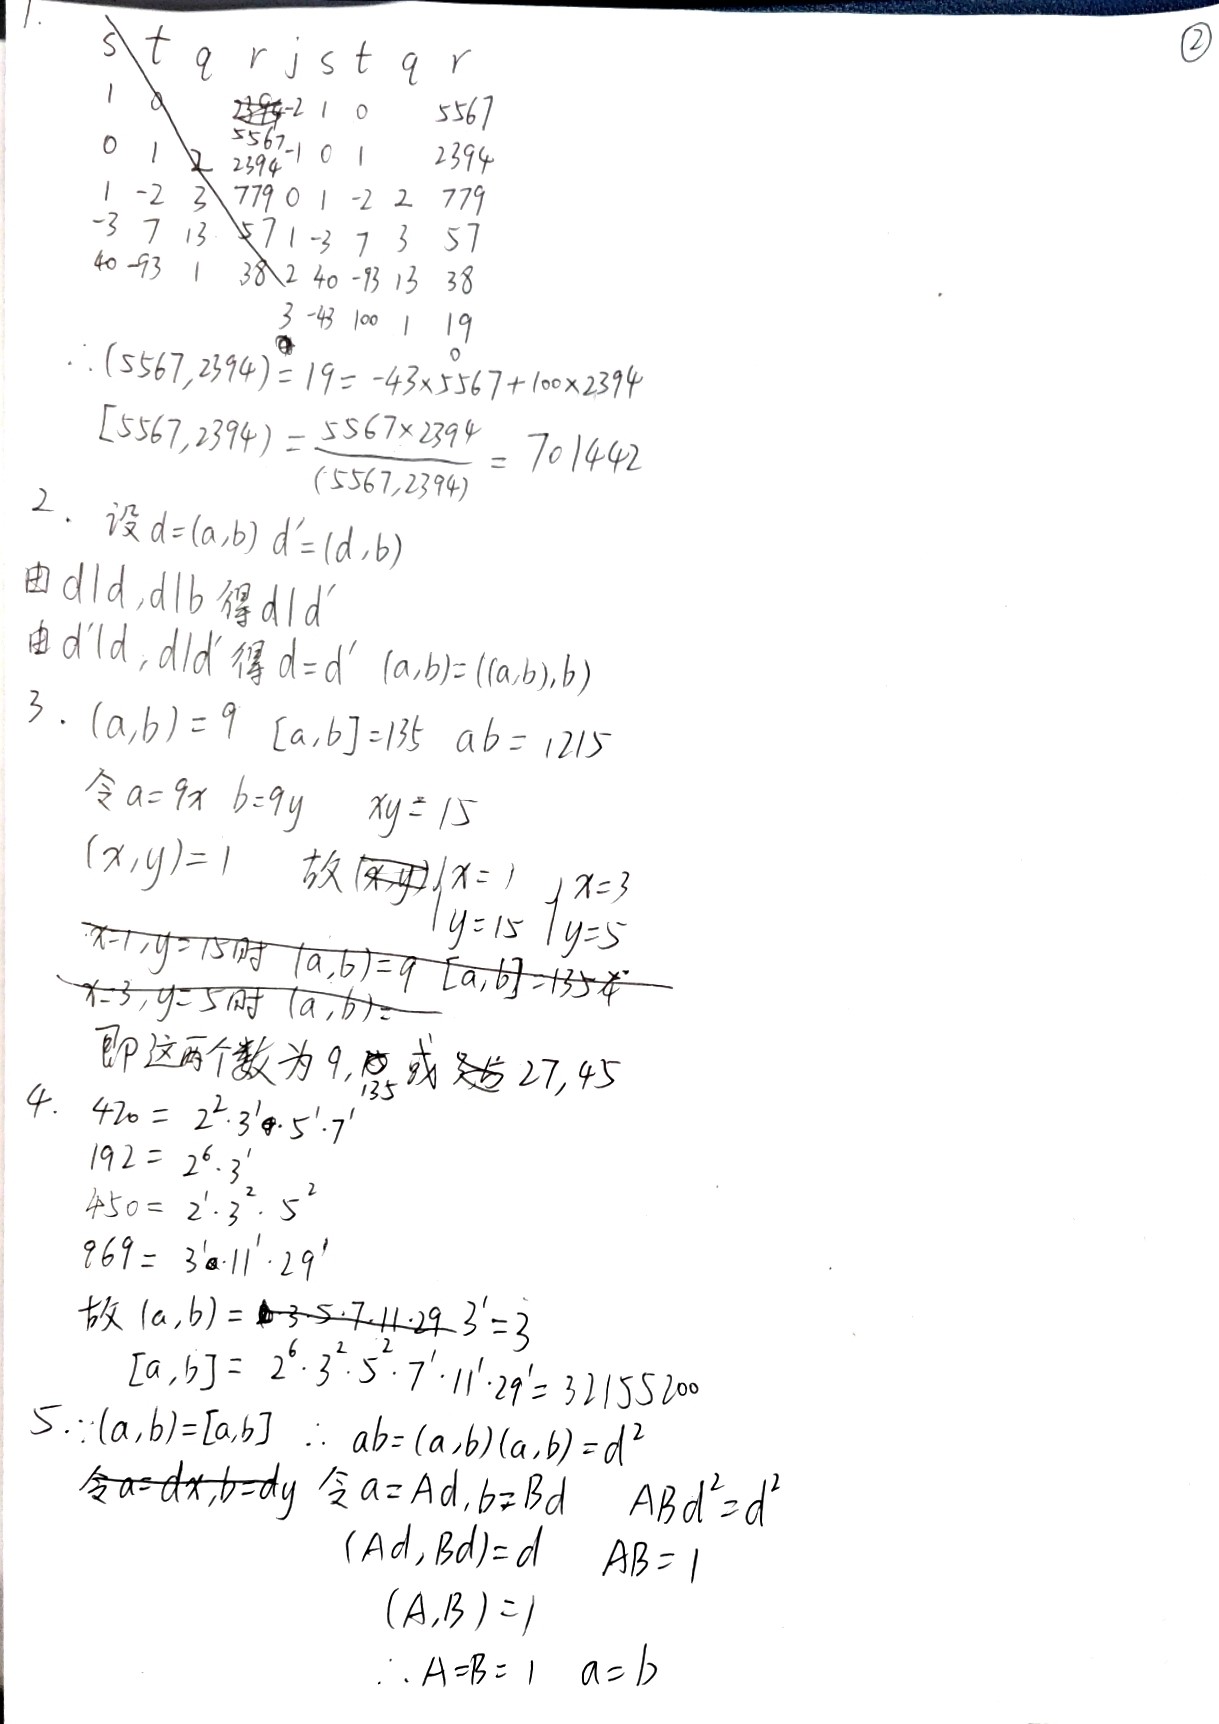 1.
②
s t q r j s t q r
1 0 2394 -2 1 0 5567
5567
0 1 2 2394 -1 0 1 2394
1 -2 3 779 0 1 -2 2 779
-3 7 13 57 1 -3 7 3 57
40 -93 1 38 2 40 -93 13 38
3 -43 100 1 19
0
∴(5567,2394)=19=-43×5567+100×2394
[5567,2394)=5567×2394/(5567,2394)=701442
2. 设d=(a,b) d'=(d,b)
由d|d,d|b得d|d'
由d'|d,d|d'得d=d' (a,b)=((a,b),b)
3. (a,b)=9 [a,b]=135 ab=1215
令a=9x b=9y xy=15
(x,y)=1 故(x,y) {x=1 {x=3
y=15 y=5
x=1,y=15时 (a,b)=9 [a,b]=135
x=3,y=5时 (a,b)=
即这两个数为9,135或27,45
4. 420=2²·3¹·5¹·7¹
192=2⁶·3¹
450=2¹·3²·5²
969=3¹·11¹·29¹
故(a,b)=3·5·7·11·29 3¹=3
[a,b]=2⁶·3²·5²·7¹·11¹·29¹=32155200
5.∵(a,b)=[a,b] ∴ab=(a,b)(a,b)=d²
令a=dx,b=dy 令a=Ad,b=Bd ABd²=d²
(Ad,Bd)=d AB=1
(A,B)=1
∴A=B=1 a=b